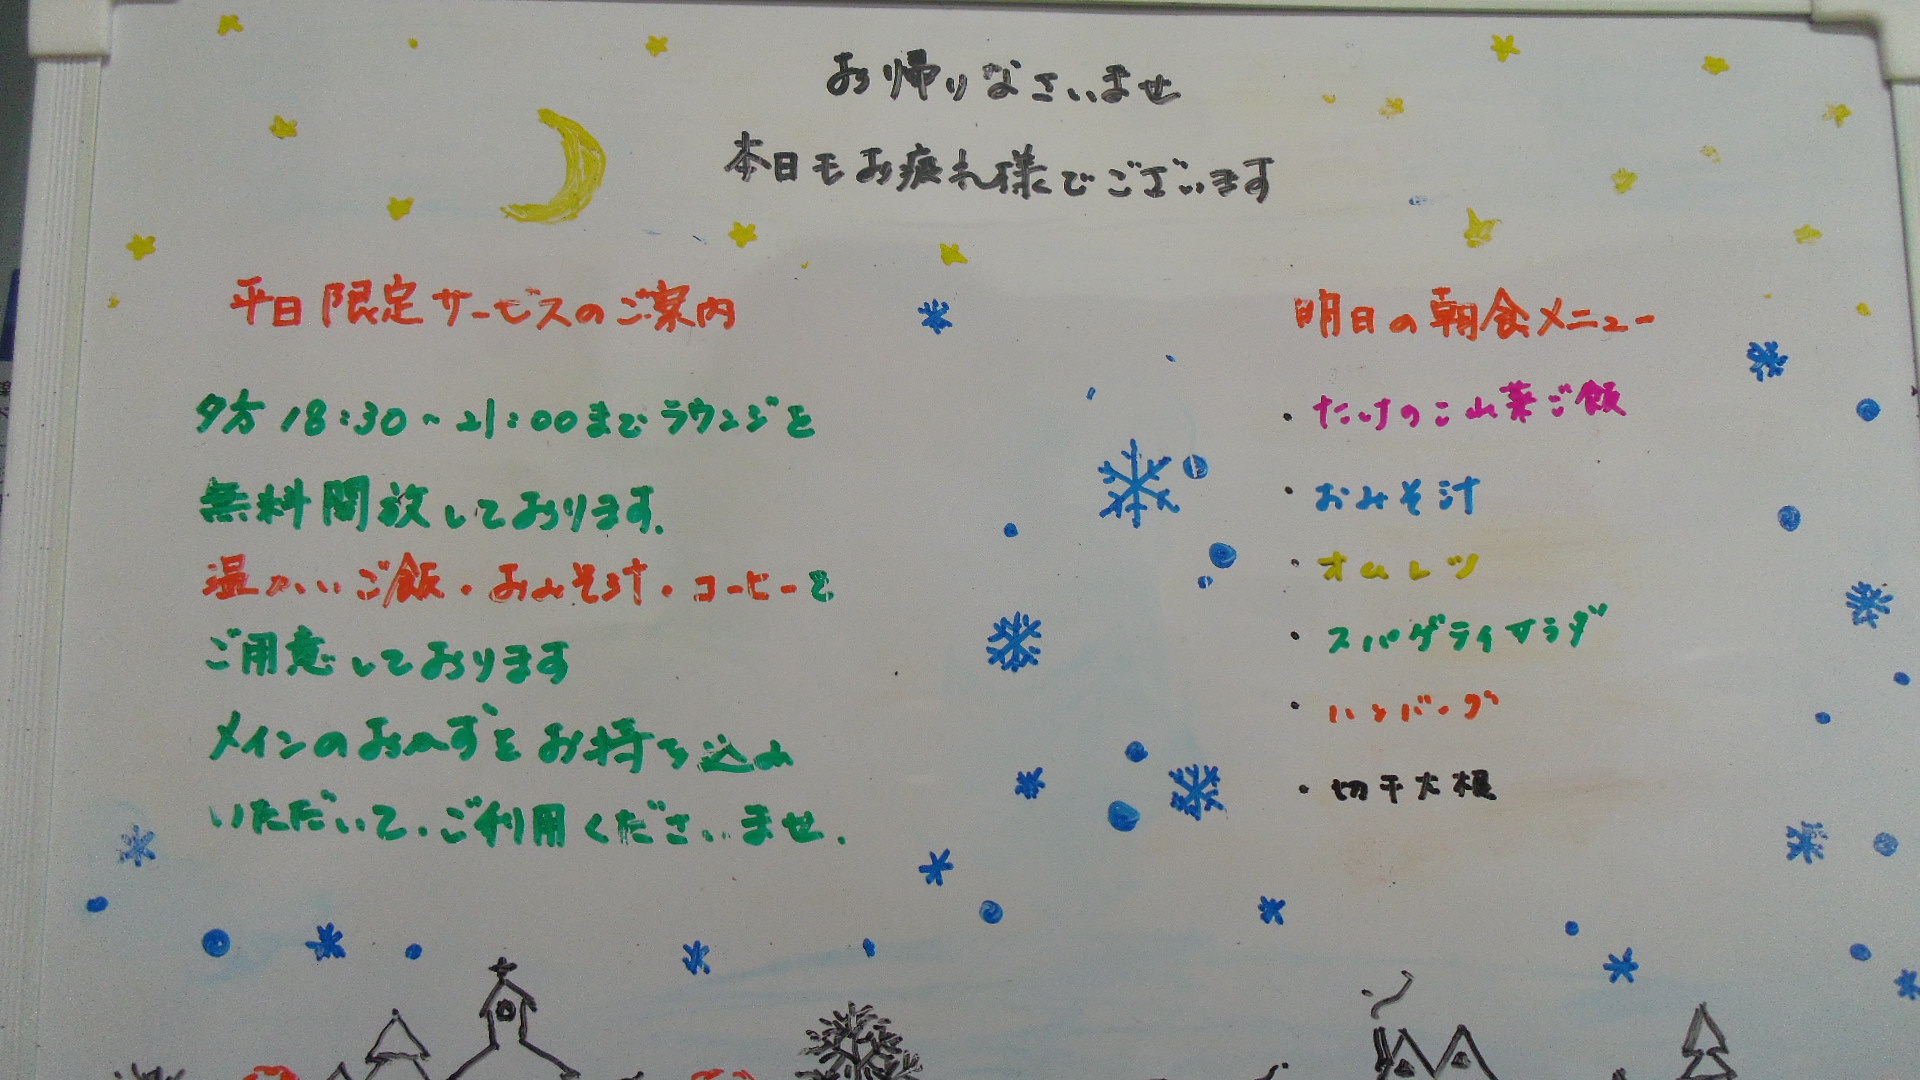 お帰りなさいませ
本日もお疲れ様でございます
平日限定サービスのご案内
夕方 18:30~21:00までラウンジを
無料開放しております。
温かいご飯・おみそ汁・コーヒーを
ご用意しております
メインのおかずをお持ち込み
いただいて、ご利用くださいませ.
明日の朝食メニュー
・たけのこ山菜ご飯
・おみそ汁
・オムレツ
・スパゲティサラダ
・ハンバーグ
・切干大根